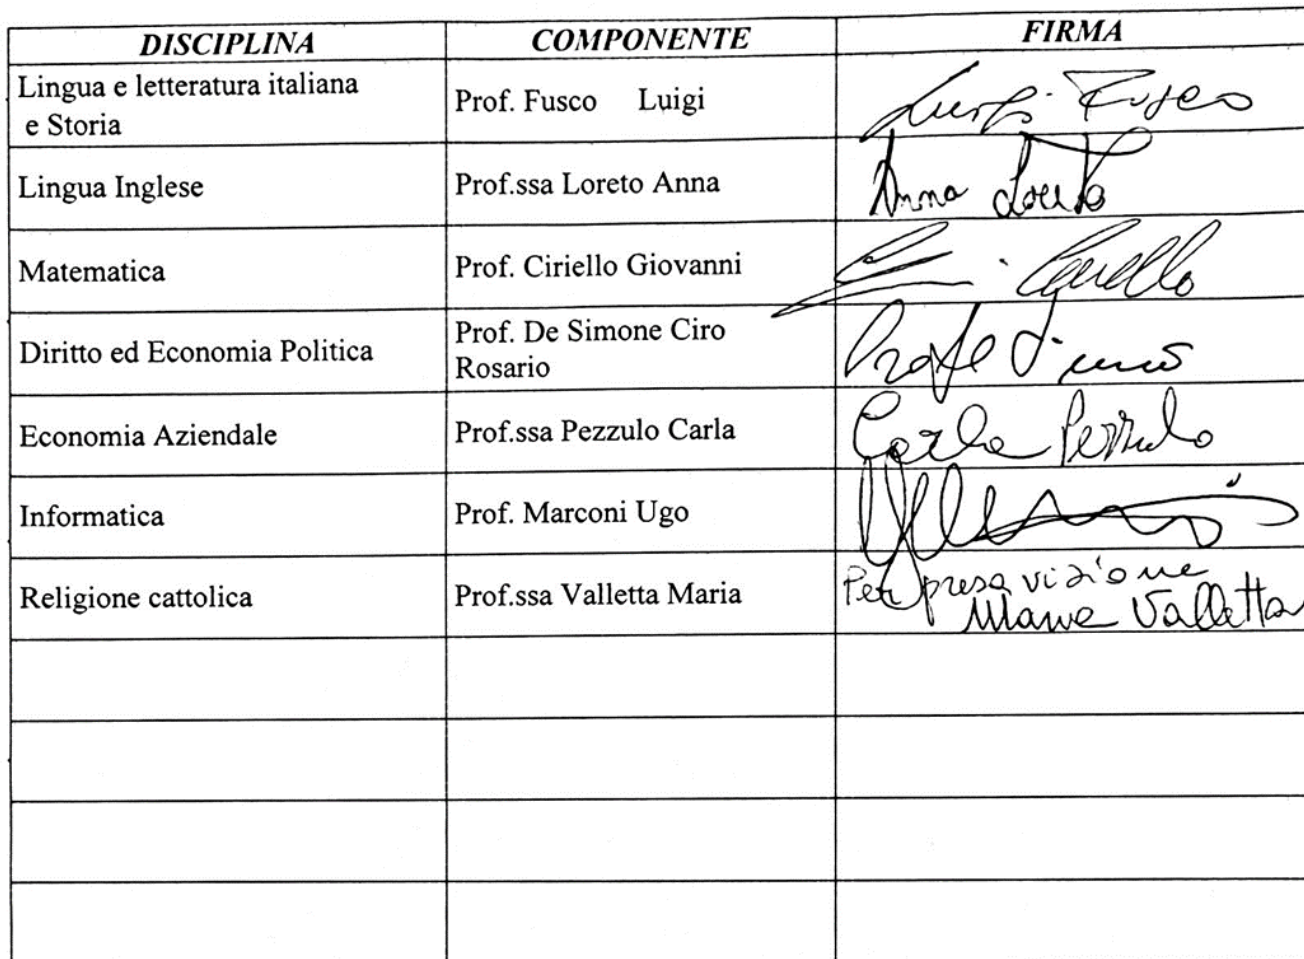 DISCIPLINA COMPONENTE FIRMA
Lingua e letteratura italiana
e Storia
Prof. Fusco Luigi
Luigi Fusco
Lingua Inglese Prof.ssa Loreto Anna Anna Loreto
Matematica Prof. Ciriello Giovanni
Diritto ed Economia Politica
Prof. De Simone Ciro
Rosario
Economia Aziendale Prof.ssa Pezzulo Carla Carla Pezzulo
Informatica Prof. Marconi Ugo
Religione cattolica Prof.ssa Valletta Maria
Per presa visione
Maria Valletta